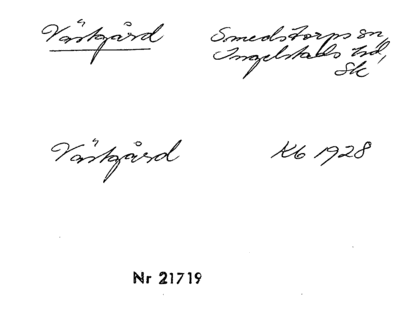 Västgård Smedstorps sn,
Ingelstads hd,
Sk
Västgård Kb 1928
Nr 21719